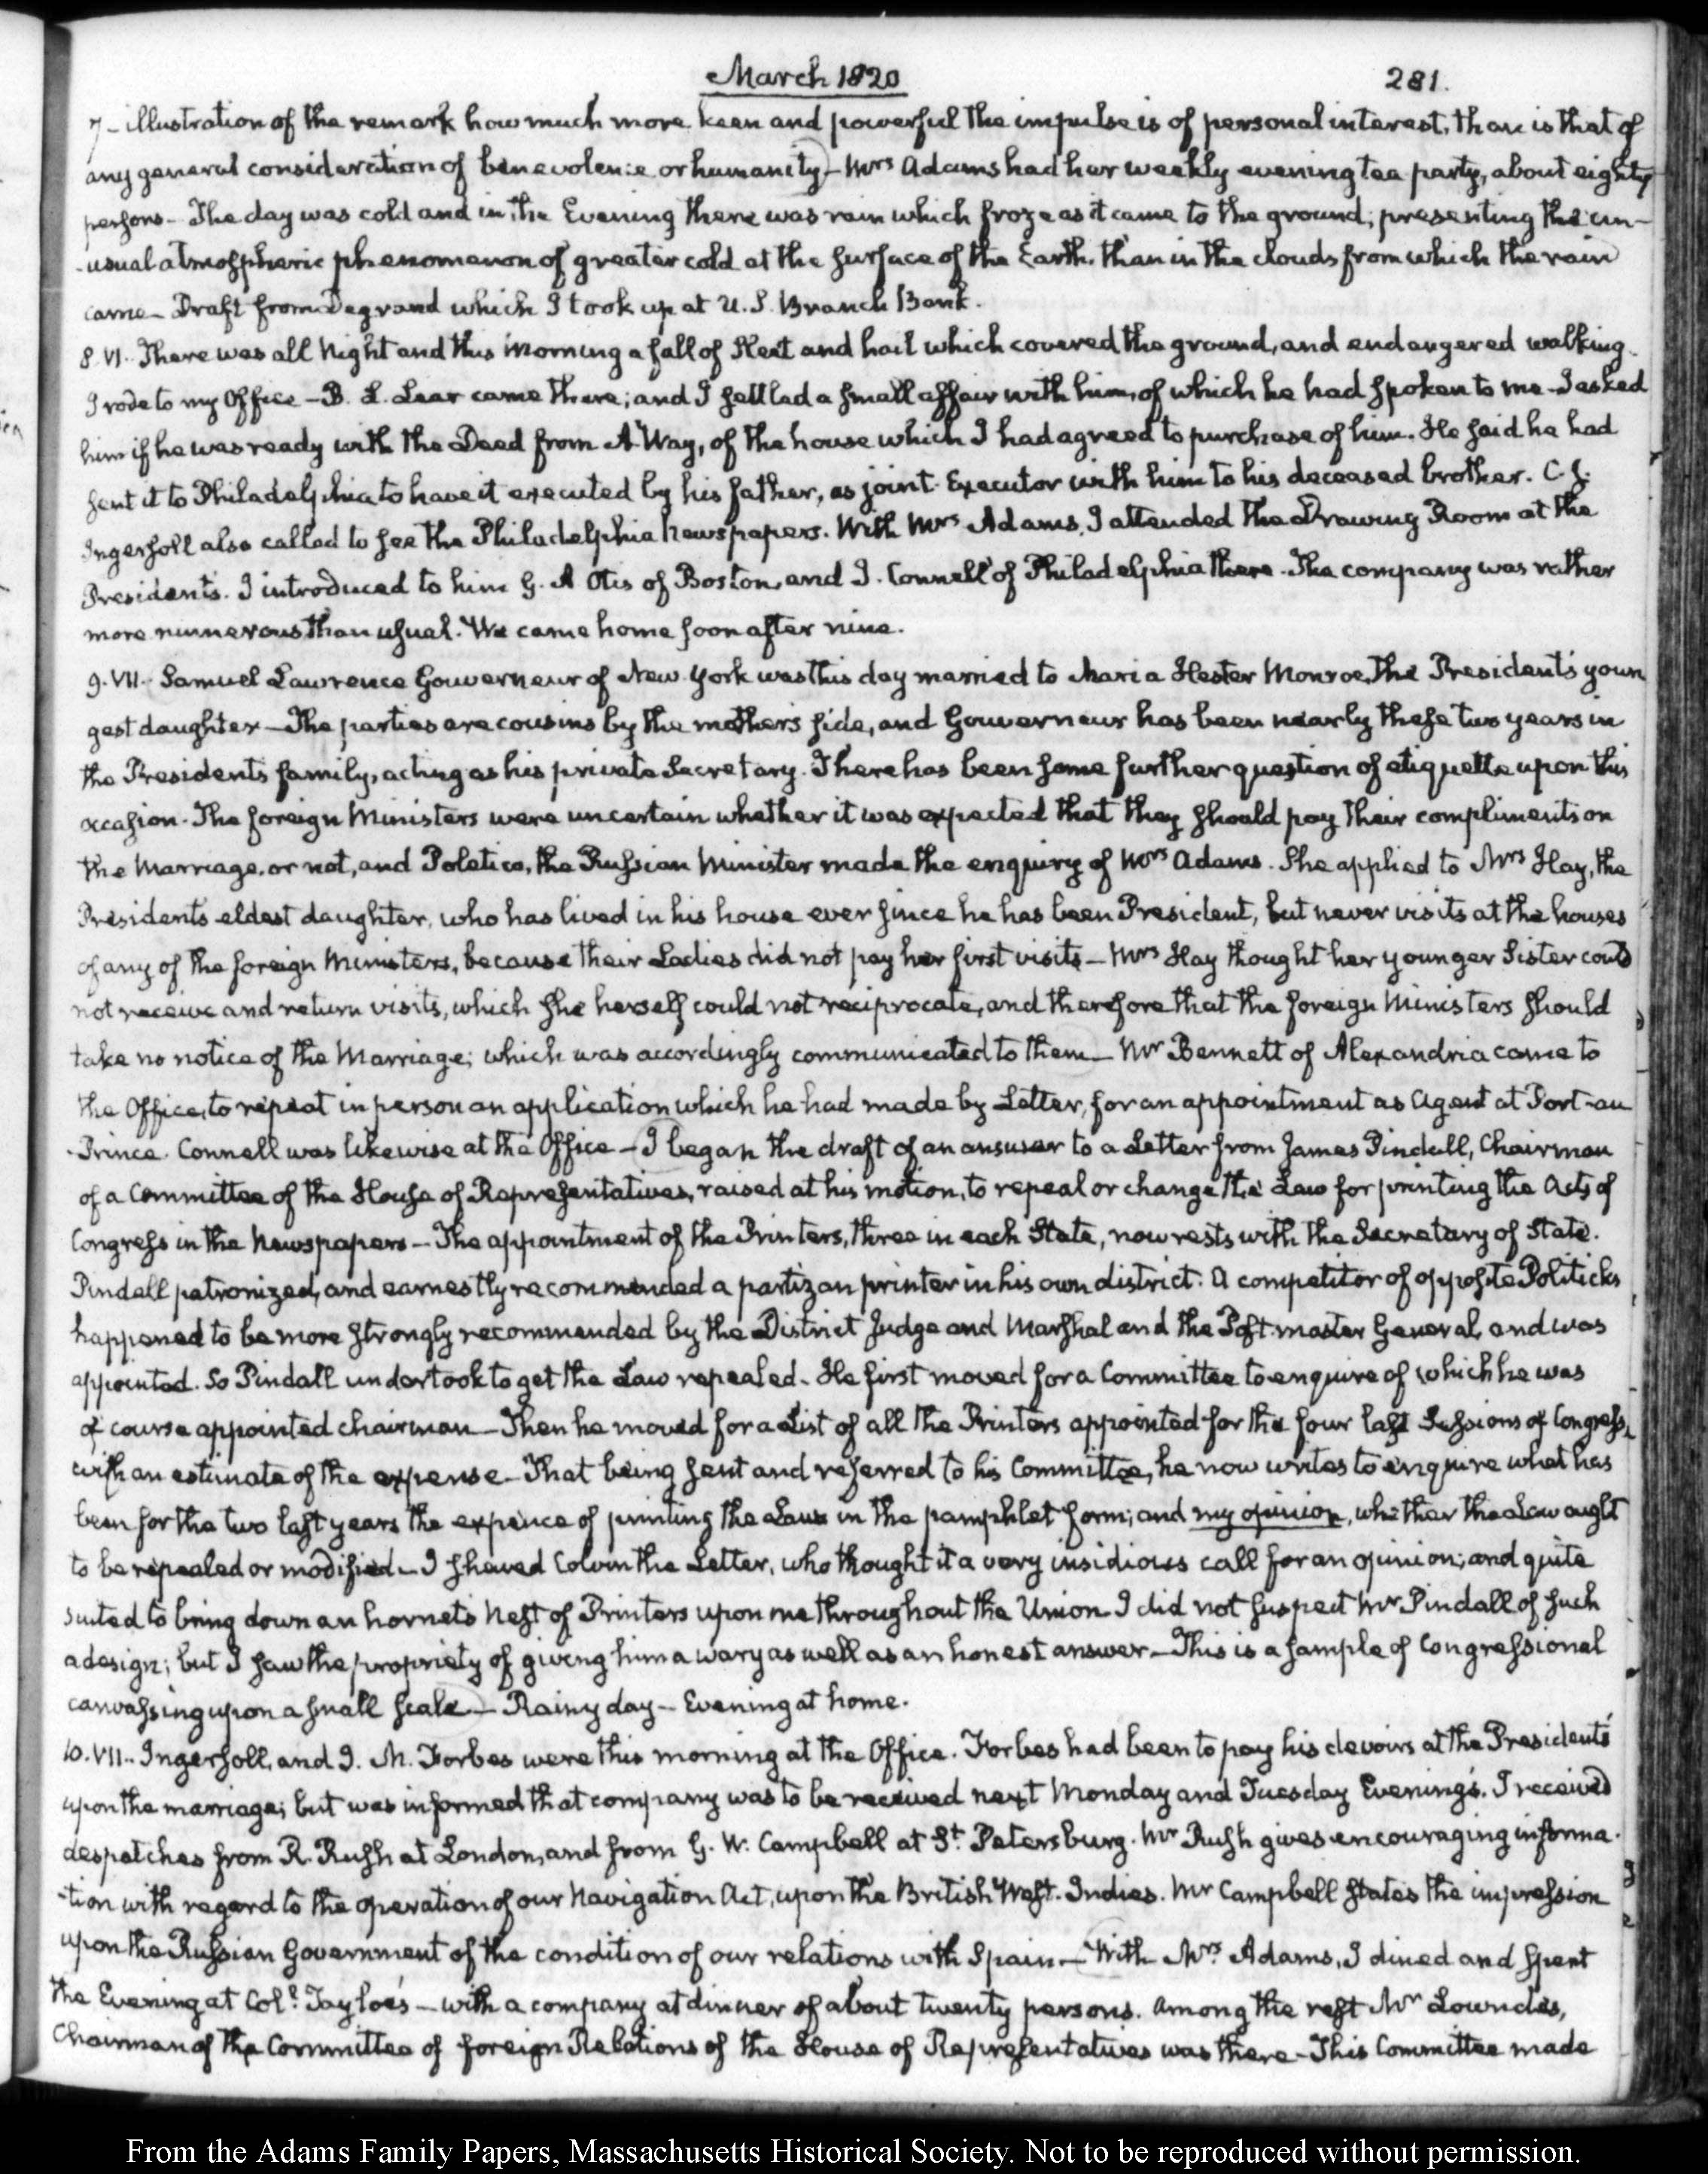 March 1820
281.
7 - illustration of the remark how much more keen and powerful the impulse is of personal interest, than is that of
any general consideration of benevolence or humanity - Mrs Adams had her weekly evening tea party, about eighty
persons - The day was cold and in the Evening there was rain which froze as it came to the ground; presenting the un-
-usual atmospheric phenomenon of greater cold at the surface of the Earth, than in the clouds from which the rain
came - Draft from Degrand which I took up at U. S. Branch Bank.
8. VI. There was all Night and this Morning a fall of Sleet and hail which covered the ground, and endangered walking.
I rode to my Office - B. L. Lear came there; and I settled a small affair with him, of which he had spoken to me - I asked
him if he was ready with the Deed from A Way, of the house which I had agreed to purchase of him. He said he had
sent it to Philadelphia to have it executed by his father, as joint Executor with him to his deceased brother. C. J.
Ingersoll also called to see the Philadelphia Newspapers. With Mrs Adams, I attended the Drawing Room at the
Presidents. I introduced to him G. A Otis of Boston, and J. Connell of Philadelphia there. The company was rather
more numerous than usual. We came home soon after nine.
9. VII. Samuel Lawrence Gouverneur of New York was this day married to Maria Hester Monroe, The President's youn
gest daughter - The parties are cousins by the mother's side, and Gouverneur has been nearly these two years in
the Presidents family, acting as his private Secretary. There has been some further question of etiquette upon this
occasion. The foreign Ministers were uncertain whether it was expected that they should pay their compliments on
the Marriage, or not, and Poletica, the Russian Minister made the enquiry of Mrs Adams. She applied to Mrs Hay, the
Presidents eldest daughter, who has lived in his house ever since he has been President, but never visits at the houses
of any of the foreign Ministers, because their Ladies did not pay her first visits - Mrs Hay thought her younger Sister could
not receive and return visits, which she herself could not reciprocate, and therefore that the foreign Ministers should
take no notice of the Marriage; which was accordingly communicated to them - Mr Bennett of Alexandria came to
the Office, to repeat in person an application which he had made by Letter, for an appointment as Agent at Port-au
-Prince. Connell was likewise at the Office - I began the draft of an answer to a Letter from James Pindall, Chairman
of a Committee of the House of Representatives, raised at his motion, to repeal or change the Law for printing the Acts of
Congress in the Newspapers - The appointment of the Printers, three in each State, now rests with the Secretary of State.
Pindall patronized, and earnestly recommended a partizan printer in his own district. A competitor of opposite Politicks
happened to be more strongly recommended by the District Judge and Marshal and the Post-master General, and was
appointed. So Pindall undertook to get the Law repealed - He first moved for a Committee to enquire of which he was
of course appointed chairman - Then he moved for a List of all the Printers appointed for the four last Sessions of Congress,
with an estimate of the expense - That being sent and referred to his Committee, he now writes to enquire what has
been for the two last years the expence of printing the Laws in the pamphlet form; and my opinion, whether the Law ought
to be repealed or modified - I shewed Colvin the Letter, who thought it a very insidious call for an opinion; and quite
suited to bring down an hornets Nest of Printers upon me throughout the Union. I did not suspect Mr Pindall of such
a design; but I saw the propriety of giving him a wary as well as an honest answer - This is a sample of Congressional
canvassing upon a small scale - Rainy day - Evening at home.
10. VII. Ingersoll, and J. M. Forbes were this morning at the Office. Forbes had been to pay his devoirs at the Presidents'
upon the marriage; but was informed that company was to be received next Monday and Tuesday Evenings. I received
despatches from R. Rush at London, and from G. W. Campbell at St. Petersburg. Mr Rush gives encouraging informa-
-tion with regard to the operation of our Navigation Act, upon the British West-Indies. Mr Campbell states the impression
upon the Russian Government of the condition of our relations with Spain - With Mrs. Adams, I dined and spent
the Evening at Coll. Tayloe's - with a company at dinner of about twenty persons. Among the rest Mr Lowndes,
Chairman of the Committee of foreign Relations of the House of Representatives was there - This Committee made
From the Adams Family Papers, Massachusetts Historical Society. Not to be reproduced without permission.